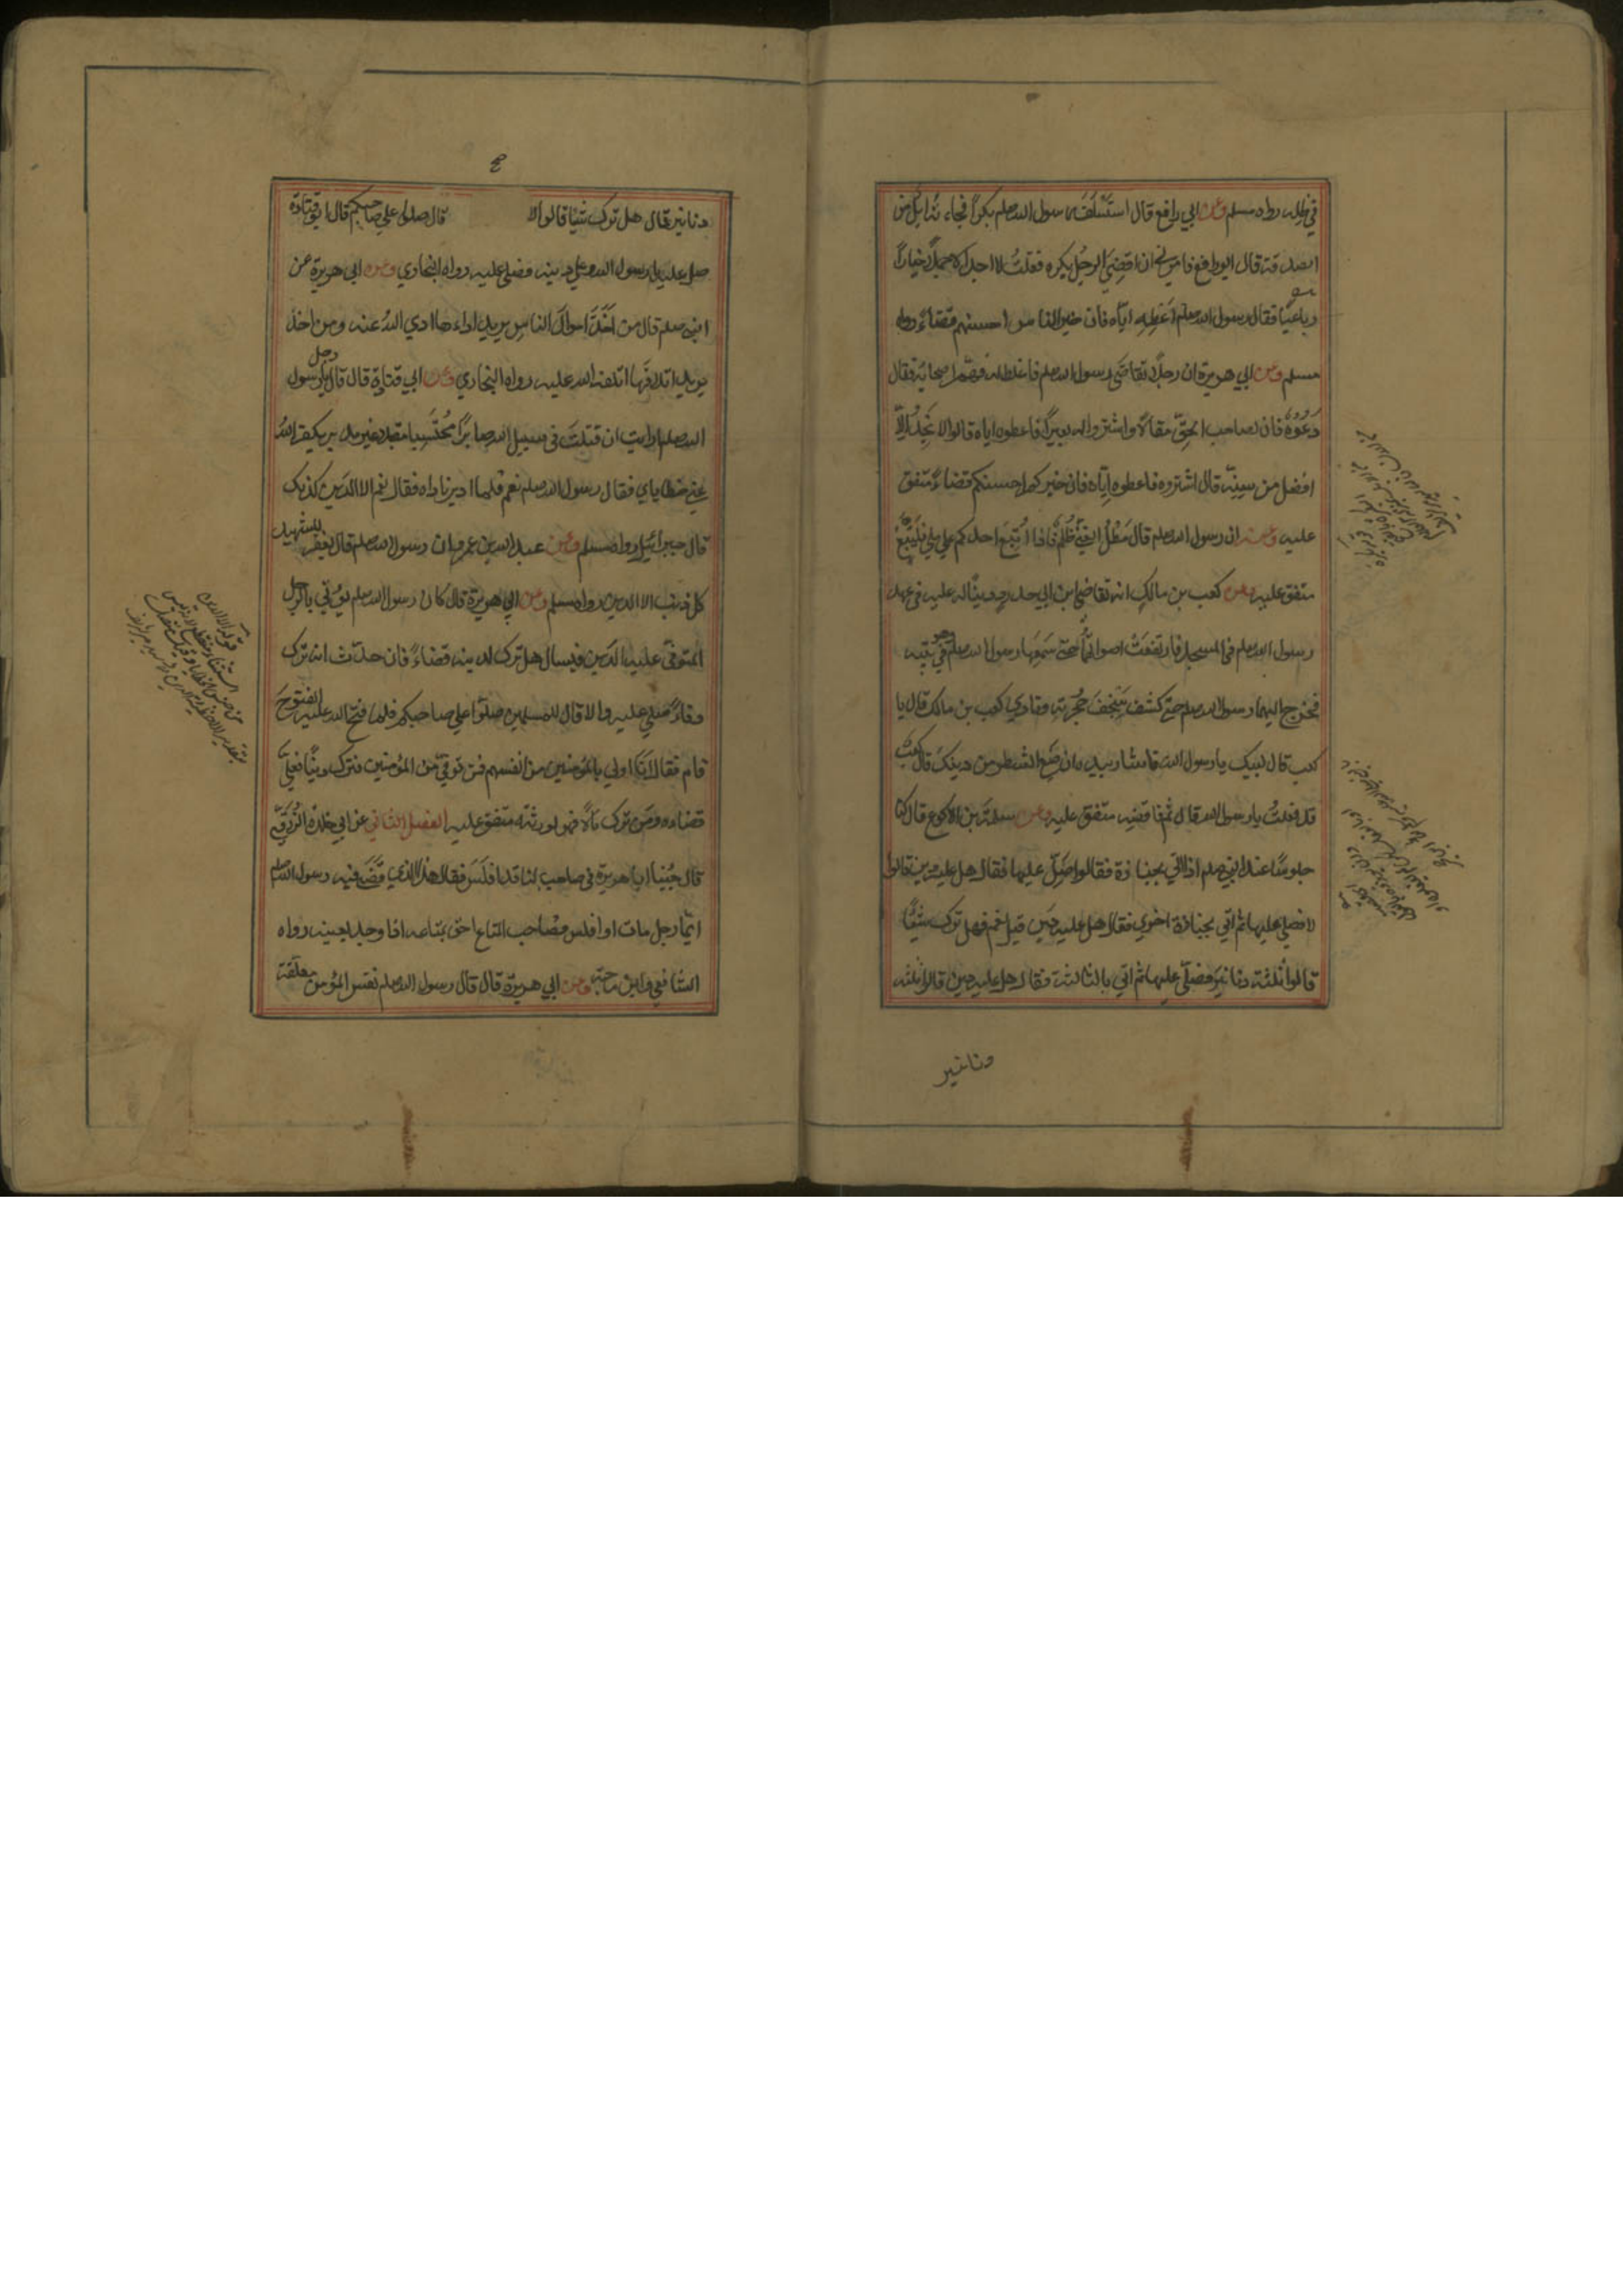 في ظله رواه مسلم وعن ابي رافع قال استسلف رسول الله صلعم بكرا فجاءته ابل من
الصدقة قال ابو رافع فامرني ان اقضي الرجل بكره فقلت لا اجد الا جملا خيارا
رباعيا فقال رسول الله صلعم اعطه اياه فان خير الناس احسنهم قضاء رواه
مسلم وعن ابي هريرة ان رجلا تقاضى رسول الله صلعم فاغلظ له فهم اصحابه فقال
دعوه فان لصاحب الحق مقالا واشتروا له بعيرا فاعطوه اياه قالوا لا نجد الا
افضل من سنه قال اشتروه فاعطوه اياه فان خيركم احسنكم قضاء متفق
عليه وعنه ان رسول الله صلعم قال مطل الغني ظلم فاذا اتبع احدكم على ملي فليتبع
متفق عليه وعن كعب بن مالك انه تقاضى ابن ابي حدرد دينا له عليه في عهد
رسول الله صلعم في المسجد فارتفعت اصواتهما حتى سمعها رسول الله صلعم وهو في بيته
فخرج اليهما رسول الله صلعم حتى كشف سجف حجرته ونادى كعب بن مالك قال يا
كعب قال لبيك يا رسول الله فاشار بيده ان ضع الشطر من دينك قال كعب
قد فعلت يا رسول الله قال قم فاقضه متفق عليه وعن سلمة بن الاكوع قال كنا
جلوسا عند النبي صلعم اذ اتي بجنازة فقالوا صل عليها فقال هل عليه دين قالوا
لا فصلى عليها ثم اتي بجنازة اخرى فقال هل عليه دين قيل نعم فهل ترك شيئا
قالوا ثلثة دنانير فصلى عليها ثم اتي بالثالثة فقال هل عليه دين قالوا ثلثه
دنانير
دنانير قال هل ترك شيئا قالوا لا قال صلوا على صاحبكم قال ابو قتادة
صل عليه يا رسول الله وعلي دينه فصلى عليه رواه البخاري وعن ابي هريرة عن
النبي صلعم قال من اخذ اموال الناس يريد اداءها ادى الله عنه ومن اخذ
يريد اتلافها اتلفه الله عليه رواه البخاري وعن ابي قتادة قال قال رجل يا رسول
الله صلعم ارايت ان قتلت في سبيل الله صابرا محتسبا مقبلا غير مدبر يكفر الله
عني خطاياي فقال رسول الله صلعم نعم فلما ادبر ناداه فقال نعم الا الدين كذلك
قال جبرائيل رواه مسلم وعن عبد الله بن عمرو ان رسول الله صلعم قال يغفر للشهيد
كل ذنب الا الدين رواه مسلم وعن ابي هريرة قال كان رسول الله صلعم يؤتى بالرجل
المتوفى عليه الدين فيسال هل ترك لدينه قضاء فان حدث انه ترك
وفاء صلى عليه والا قال للمسلمين صلوا على صاحبكم فلما فتح الله عليه الفتوح
قام فقال انا اولى بالمؤمنين من انفسهم فمن توفي من المؤمنين فترك دينا فعلي
قضاءه ومن ترك مالا فهو لورثته متفق عليه الفصل الثاني عن ابي خلدة الزرقي
قال جئنا ابا هريرة في صاحب لنا قد افلس فقال هذا الذي قضى فيه رسول الله صلعم
ايما رجل مات او افلس فصاحب المتاع احق بمتاعه اذا وجده بعينه رواه
الشافعي وابن ماجه وعن ابي هريرة قال قال رسول الله صلعم نفس المؤمن معلقة